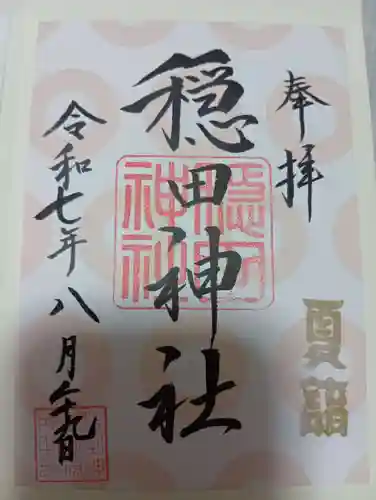 奉拝
夏詣
穏田神社
穏田神社
令和七年八月二十九日